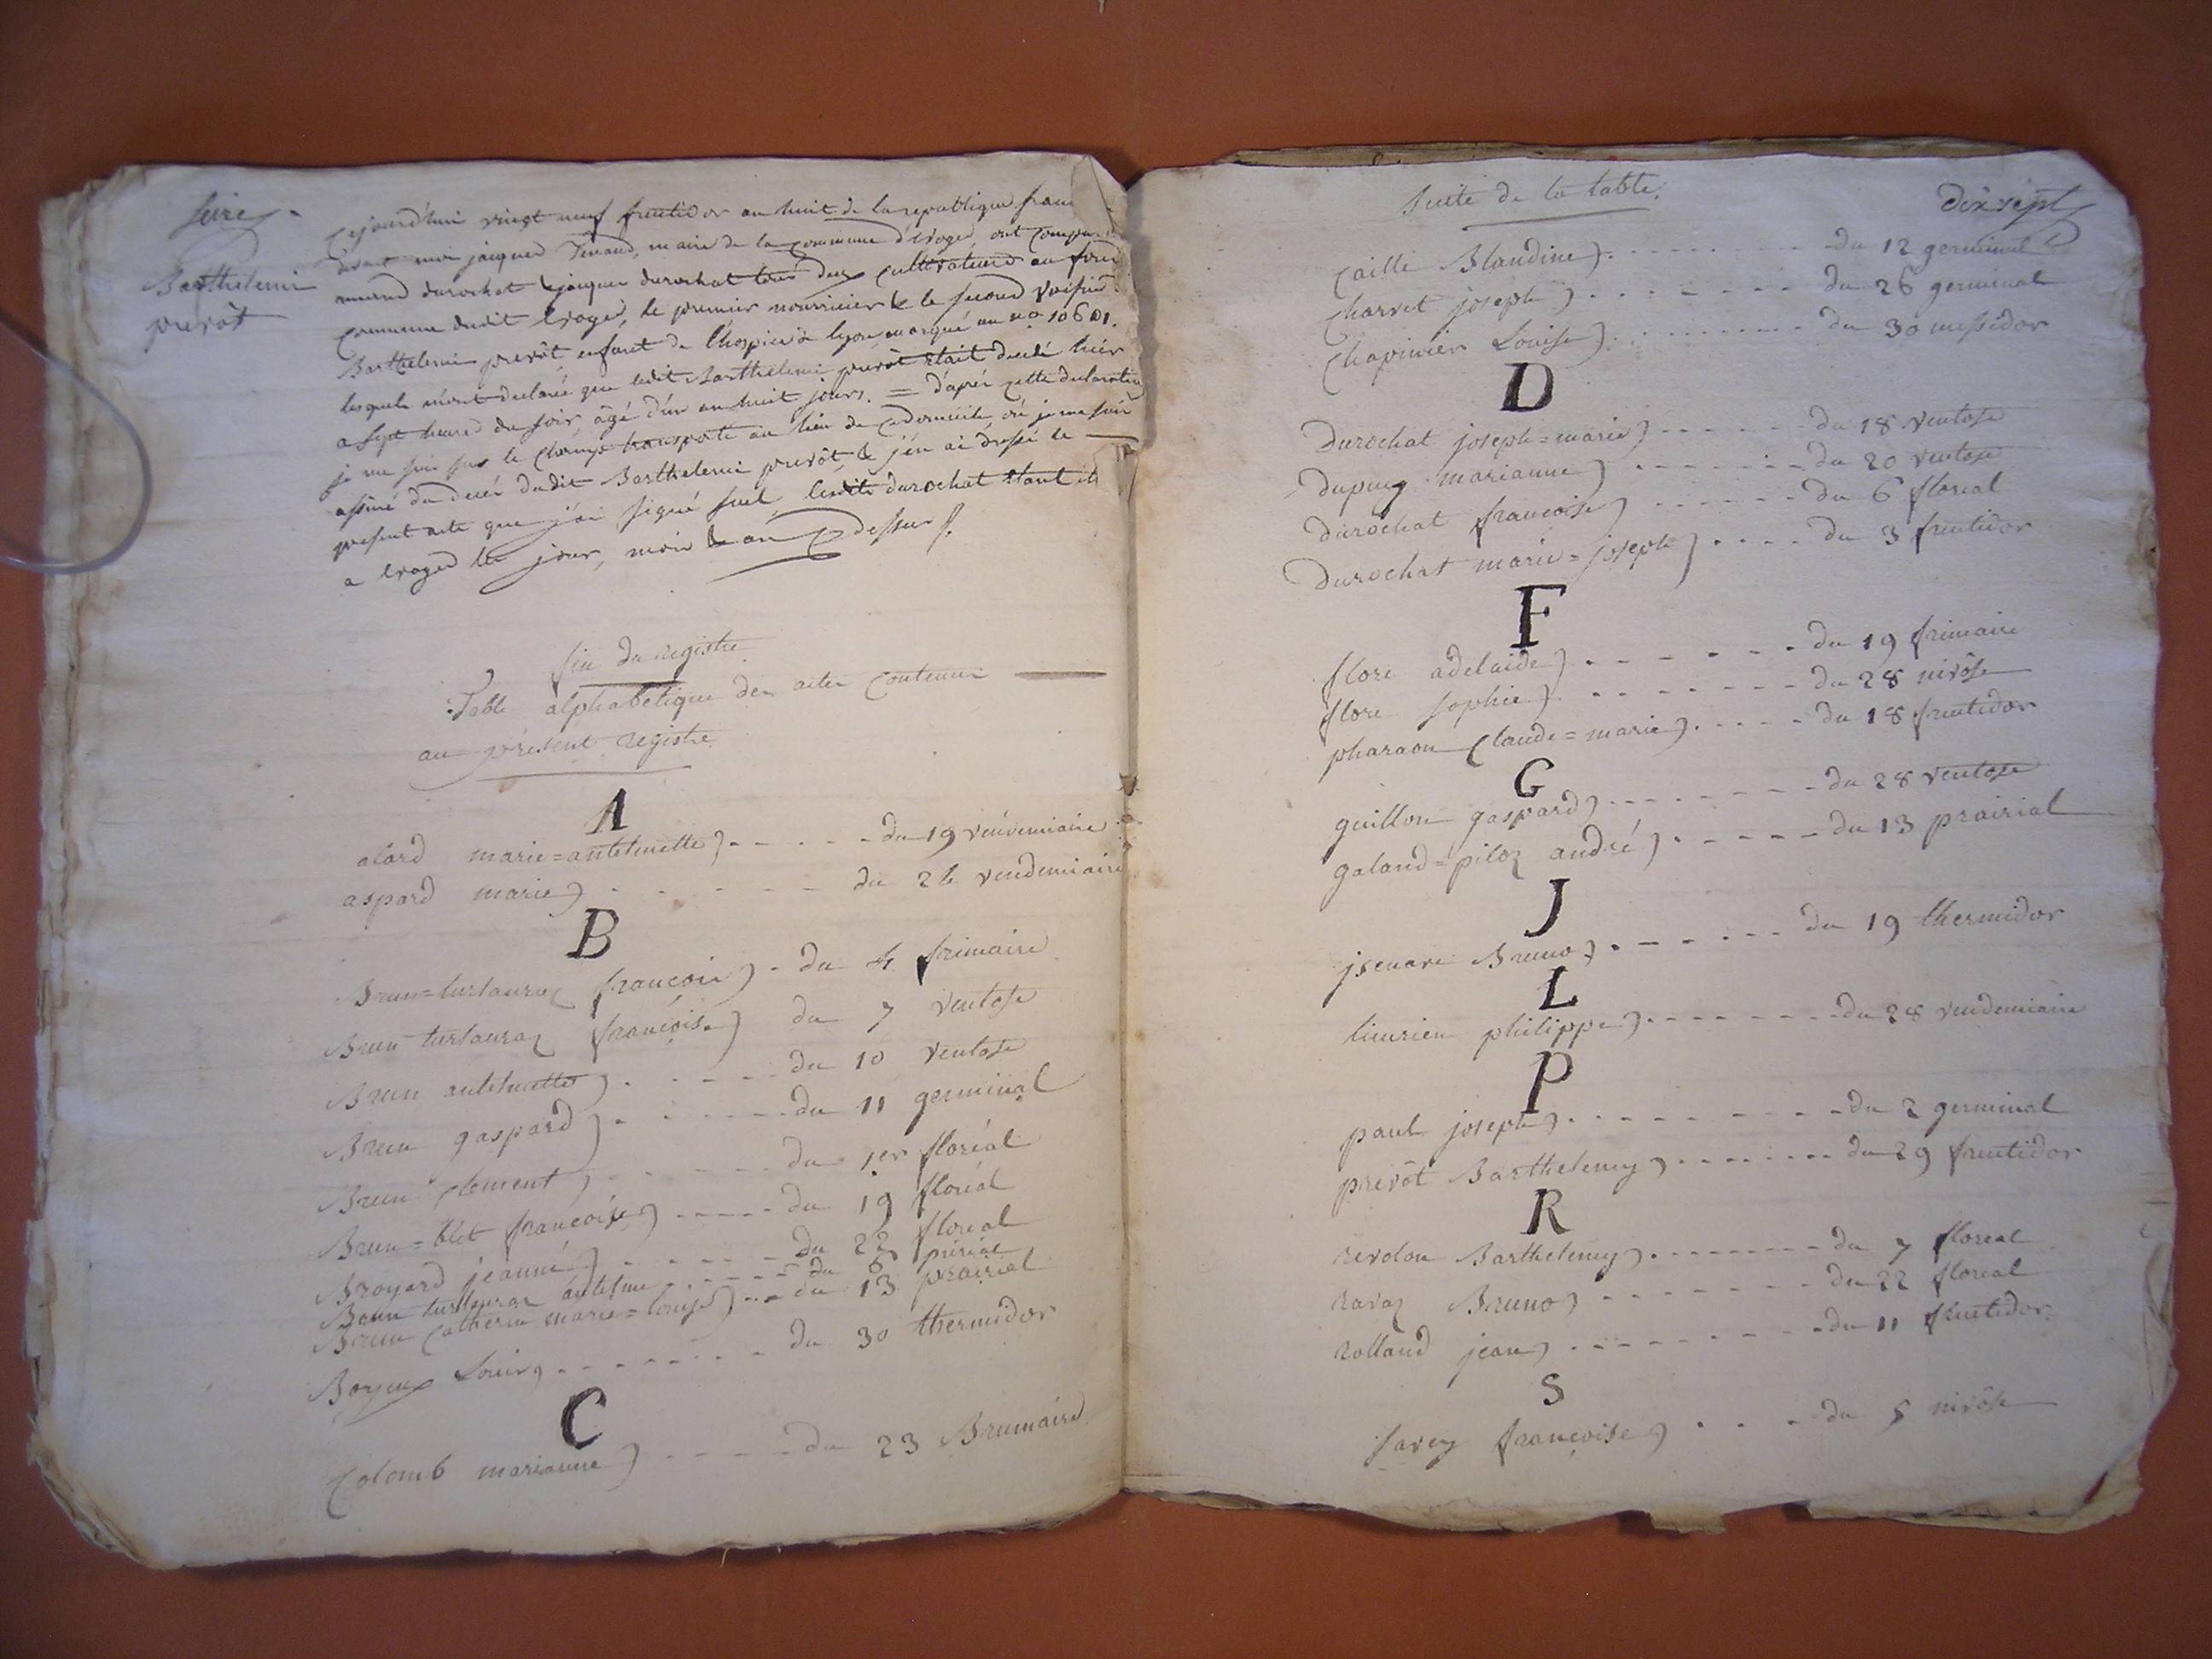 seize
Barthelemi
prevôt
Cejourd'hui vingt neuf fructidor an huit de la republique fran
devant moi jacques Tenand, maire de la commune d'evoges ont comparu
durochat & jacques durochat tous deux cultivateurs au
commune dudit Evoges, le premier nourricier & le second voisin
Barthelemi prevôt, enfant de l'hospice de lyon marqué au no. 10601.
lesquels m'ont declaré que ledit Barthelemi prevôt était decedé hier
a sept heures du soir, âgé d'un an huit jours. = d'après cette declaration
je me suis sur le champ transporté au lieu de ce domicile où je me suis
assuré du decés dudit Barthelemi prevôt, & j'en ai dressé le
present acte que j'ai signé seul lesdits durochat étant
a Evoges les jour, mois & an que dessus.
fin du registre
Table alphabétique des actes contenus
au présent registre
A
alard marie=antelmette) - - - - - du 19 vendemiaire
aspard marie) - - - - - du 24 vendemiaire
B
Brun=turlauraz françois) - du 4 frimaire
Brun turlauraz françoise) du 7 ventose
Brun antelmette) - - - - - du 10 ventose
Brun gaspard) - - - - - du 11 germinal
Brun clement) - - - - - du 1er floréal
Brun=blet françoise) - - - - - du 19 floréal
Broyard jeanne) - - - - - du 22 floreal
Brun turlauraz antelme - - - - - du 8 prérial
Brun Catherin marie=louise) - - - du 13 prairial
Boyeux Louis) - - - - - - - du 30 thermidor
C
Colomb marianne) - - - - - du 23 Brumaire
Suite de la table.
dix sept
Caille Blandine) - - - - - - - - du 12 germinal
Charvet joseph) - - - - - - - du 26 germinal
Chapinier Louise) - - - - - - - du 30 messidor
D
Durochat joseph=marie) - - - - - - du 18 ventose
Dupuy marianne) - - - - - - du 20 ventose
Durochat françoise) - - - - - - du 6 floreal
Durochat marie=joseph) - - - - du 3 fructidor
F
flore adelaide) - - - - - - - du 19 frimaire
flore sophie) - - - - - - - du 28 nivôse
pharaon Claude=marie) - - - - du 18 fructidor
G
guillon gaspard) - - - - - - - du 28 ventose
galand=piloz andré) - - - - - du 13 prairial
J
jsenare Bruno) - - - - - - du 19 thermidor
L
lieurien philippe) - - - - - - - du 28 vendemiaire
P
paul joseph) - - - - - - - - du 2 germinal
prevôt Barthelemy) - - - - - - - du 29 fructidor
R
revolon Barthelemy) - - - - - - - du 7 floreal
ravaz Bruno) - - - - - - - du 22 floreal
rolland jean) - - - - - - - du 11 fructidor.
S
savey françoise) - - - du 5 nivôse